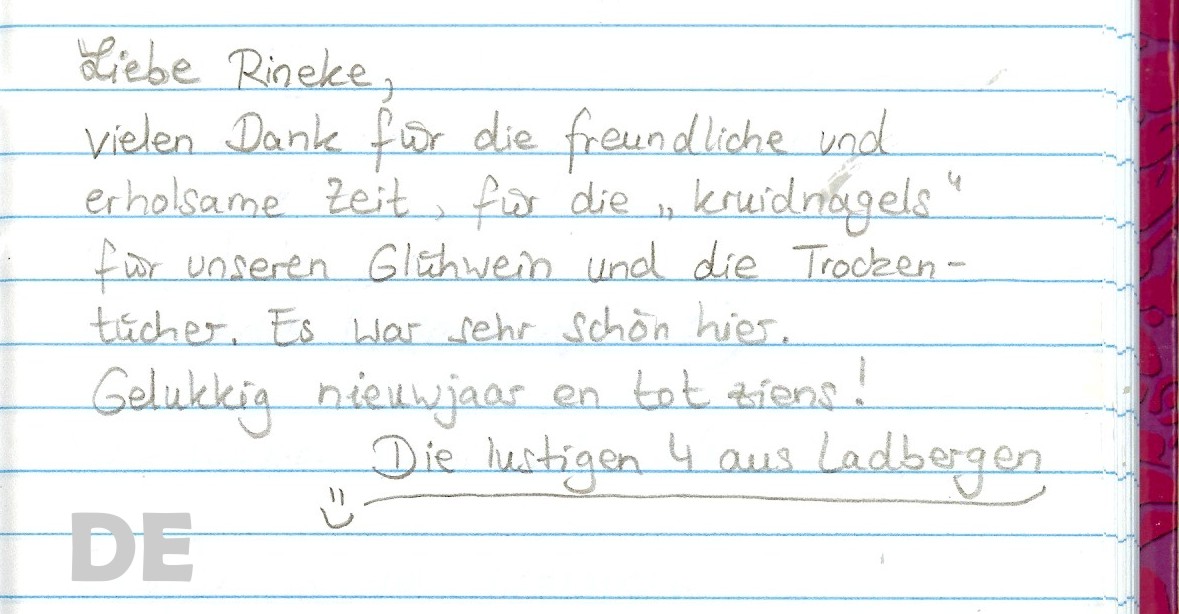 Liebe Rineke,
vielen Dank für die freundliche und
erholsame Zeit, für die „kruidnagels“
für unseren Glühwein und die Trocken-
tücher. Es war sehr schön hier.
Gelukkig nieuwjaar en tot ziens!
Die lustigen 4 aus Ladbergen
DE